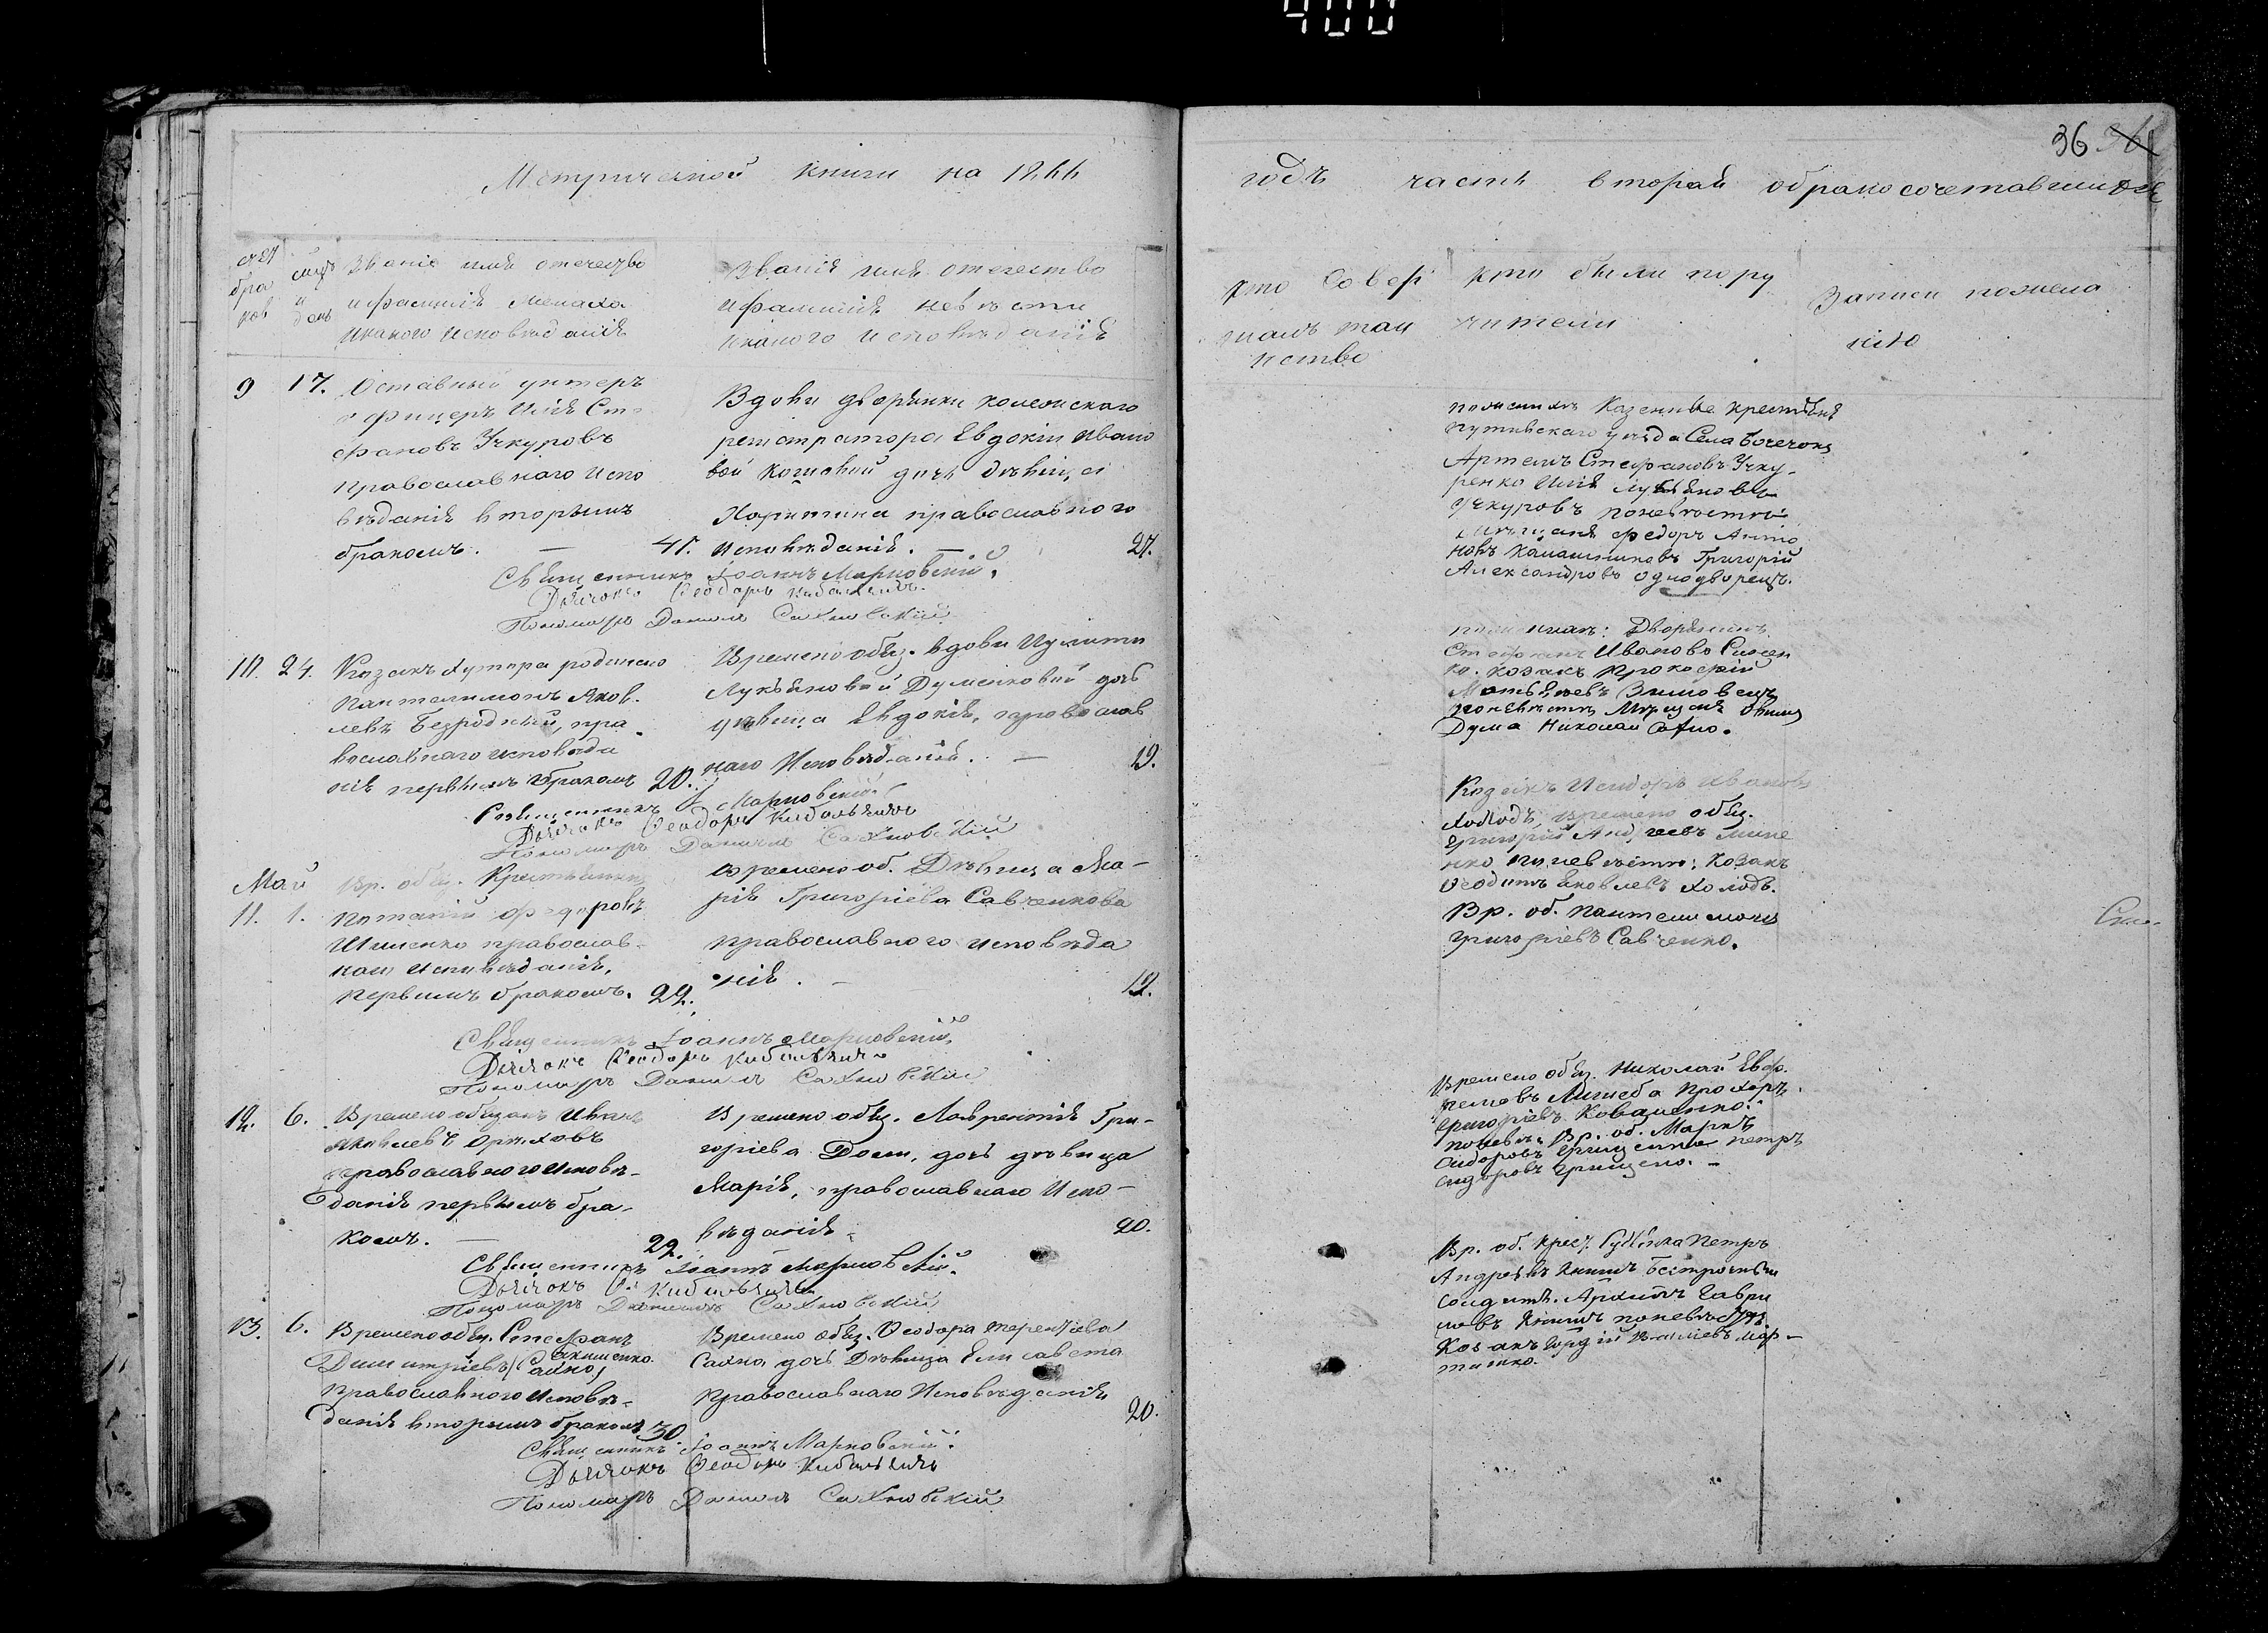 400
36
Метрической книги на 1866
годъ часть вторая о бракосочетавшихся
счет бра ков
мцъ и день
Званіе имя отечество
и фамилія жениха
икакого исповѣданія
Званія имя отечество
и фамилія невѣсты
икакого исповѣданія
кто совер
шалъ таи
нство
кто были пору
чители
Записи по жела
нію
9 17. Оставный унтеръ
офицеръ Илія Сте
фановъ Учкуровъ
православнаго испо
вѣданія вторымъ
бракомъ. — 41.
Вдовы дворянки колежскаго
регистратора Евдокіи Ивано
вой дочь дѣвица
Харитина православного
исповѣданія. — 27.
Священникъ Іоаннъ Марковскій.
Дьячокъ Ѳеодоръ Кибальчичъ.
Пономарь Данило Сахновскій
по женихѣ Казенные крестьяне
путивскаго уѣзда Села Бочечокъ
Артемъ Стефановъ Учку-
ренко Илія Лукьяновъ
Учкуровъ по невѣстѣ
мѣщане Федоръ Анто
новъ Калашниковъ Григорій
Александровъ однодворецъ.
10. 24. Казакъ Хутора
Пантелимонъ Яков-
левъ Безродный, пра
вославнаго исповѣда
нія первымъ бракомъ 20.
Временообяз. вдовы Иулиты
Лукьяновой Думенковой дочь
дѣвица Евдокія, православ
наго исповѣданія. — 19.
Священникъ І Марковскій.
Дьячокъ Ѳеодоръ Кибальчичъ
Пономарь Данило Сахновскій
по женихѣ: Дворянинъ
Стефанъ Ивановъ
ко. козакъ Прокофій
Матвѣевъ Зимовецъ
по невѣстѣ Мѣщане
Дума Николай
Май
11. 1. Вр. обяз. Крестьянинъ
Потапій Федоровъ
православ-
наго исповѣданія,
первымъ бракомъ. 22.
временооб. Дѣвица Ма-
рія Григоріева Савченкова
православного исповѣда
нія. — 19.
Священникъ Іоаннъ Марковскій
Дьячокъ Ѳеодоръ Кибальчичъ
Пономарь Данило Сахновскій
Козакъ Исидоръ Ивановъ
Холодъ, времено обяз.
Григорій
нко по невѣстѣ: Козакъ
Ѳеодотъ Яковлевъ Холодъ.
Вр. об. Пантелимонъ
Григоріевъ Савченко.
12. 6. Временообязанъ Иванъ
Яковлевъ Орѣховъ
православного исповѣ-
данія первымъ бра-
комъ. — 22.
Временообяз. Лаврентія Гри-
горіева дочь дѣвица
Марія, православнаго испо-
вѣданія. 20.
Священникъ Іоаннъ Марковскій.
Дьячокъ Ѳ. Кибальчичъ
Пономарь Данило Сахновскій
Времено обяз. Николай Евф.
Прохоръ
Григоріевъ Коваленко.
по невѣс. Вр. об. Маркъ
Сидоровъ Грищенко Петръ
Сидоровъ Грищенко. —
13. 6. Временообяз. Стефанъ
Димитріевъ Сайко,
Якименко.
православного исповѣ-
данія вторымъ бракомъ 30.
Времено обяз. Ѳеодора Терентіева
Сайка дочь Дѣвица Елисавета
православнаго исповѣданія
20.
Священникъ Іоаннъ Марковскій.
Дьячокъ Ѳеодоръ Кибальчичъ
Пономарь Данило Сахновскій
Вр. об. крест. Петръ
Андреевъ
солдатъ. Архипъ Гаври
ловъ по невѣстѣ
Козакъ Гордій